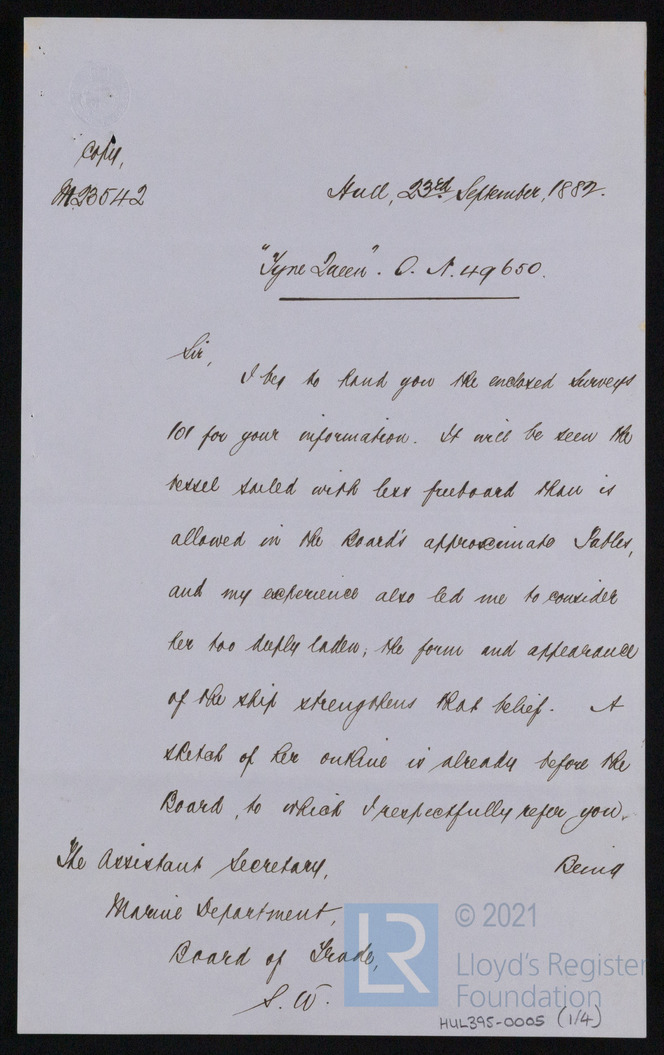 Copy,
M.23542
Hull, 23rd September, 1882.
"Tyne Queen". O. N. 49650.
Sir,
I beg to hand you the enclosed Surveys
101 for your information. It will be seen the
vessel sailed with less freeboard than is
allowed in the Board's approximate Tables,
and my experience also led me to consider
her too deeply laden; the form and appearance
of the ship strengthens that belief. A
sketch of her outline is already before the
Board, to which I respectfully refer you.
Being
The Assistant Secretary,
Marine Department,
Board of Trade,
S. W.
© 2021
LR
Lloyd's Register
Foundation
HUL395-0005 (1/4)